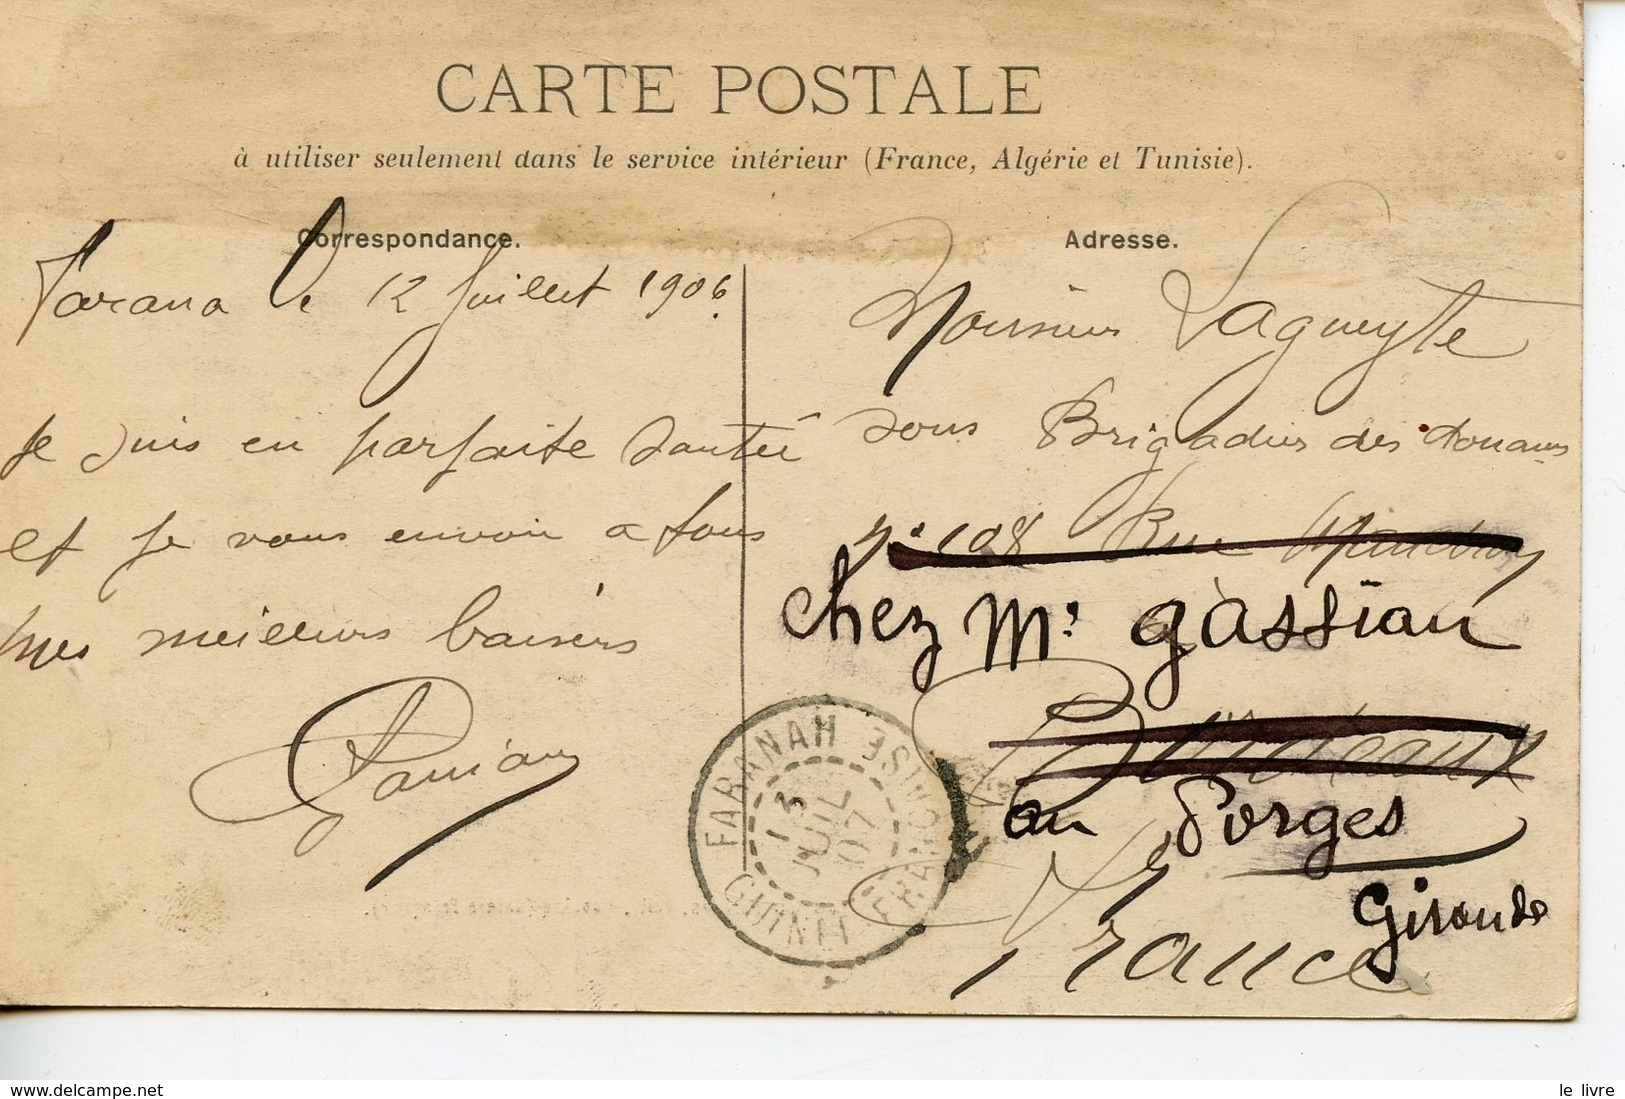 CARTE POSTALE
à utiliser seulement dans le service intérieur (France, Algérie et Tunisie).
Correspondance.
Farana le 12 Juillet 1906.
Je suis en parfaite santée
et je vous envoie a tous
mes meilleurs baisers
Adresse.
Monsieur Lagueyte
sous Brigadier des douanes
N° 108 Rue
chez Mr gassian
Bordeaux
au Porges
Gironde
France
FARANAH
13
JUIL
07
GUINEE FRANCAISE
www.delcampe.net
le livre